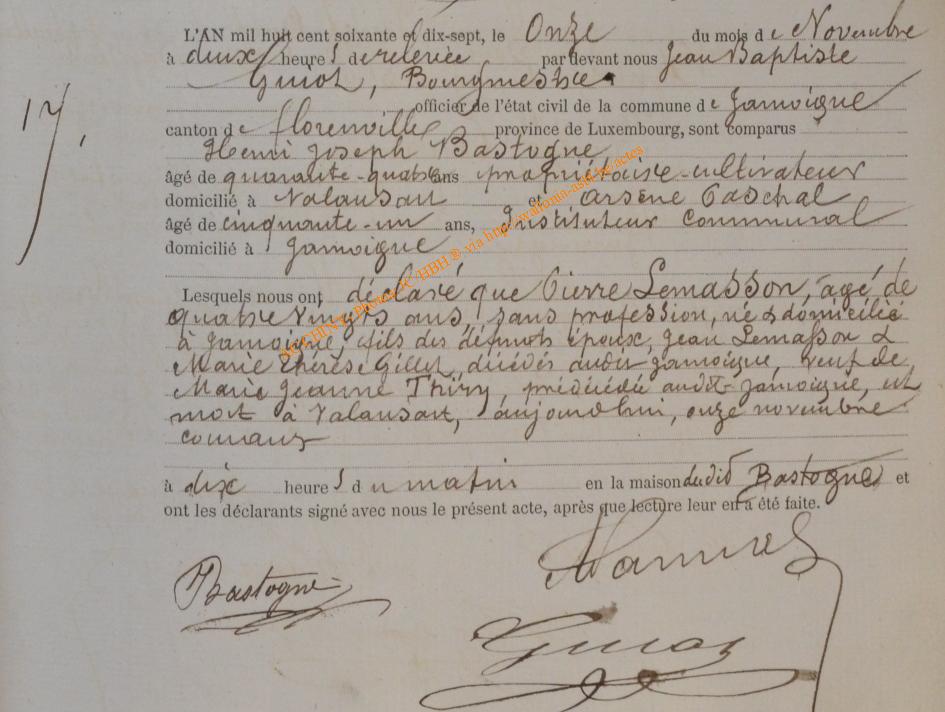 L'AN mil huit cent soixante et dix-sept, le Onze du mois de Novembre
à deux heures de relevée par devant nous Jean Baptiste
Guiot, Bourgmestre
officier de l'état civil de la commune de Jamoigne
17,
canton de Florenville province de Luxembourg, sont comparus
Henri Joseph Bastogne
âgé de quarante-quatre ans propriétaire-cultivateur
domicilié à Valansart et Arsène
âgé de cinquante-un ans, Instituteur communal
domicilié à Jamoigne
Lesquels nous ont déclaré que Pierre Lemasson, agé de
quatre vingts ans, sans profession, né & domicilié
à Jamoigne, fils des défunts époux, Jean Lemasson &
Marie Thérèse Gillet, décédés audit Jamoigne, veuf de
Marie Jeanne Thiry, prédécédée audit Jamoigne, est
mort à Valansart, aujourdhui, onze novembre
courant
à dix heures du matin en la maison dudit Bastogne et
ont les déclarants signé avec nous le présent acte, après que lecture leur en a été faite.
Bastogne
Guiot